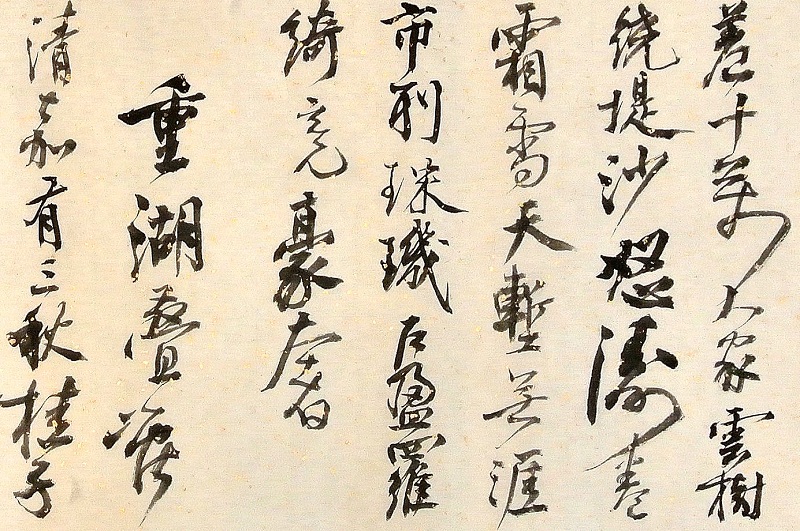 差十萬人家雲樹
繞堤沙怒濤卷
霜雪天塹無涯
市列珠璣户盈羅
綺競豪奢
重湖疊巘
清嘉有三秋桂子